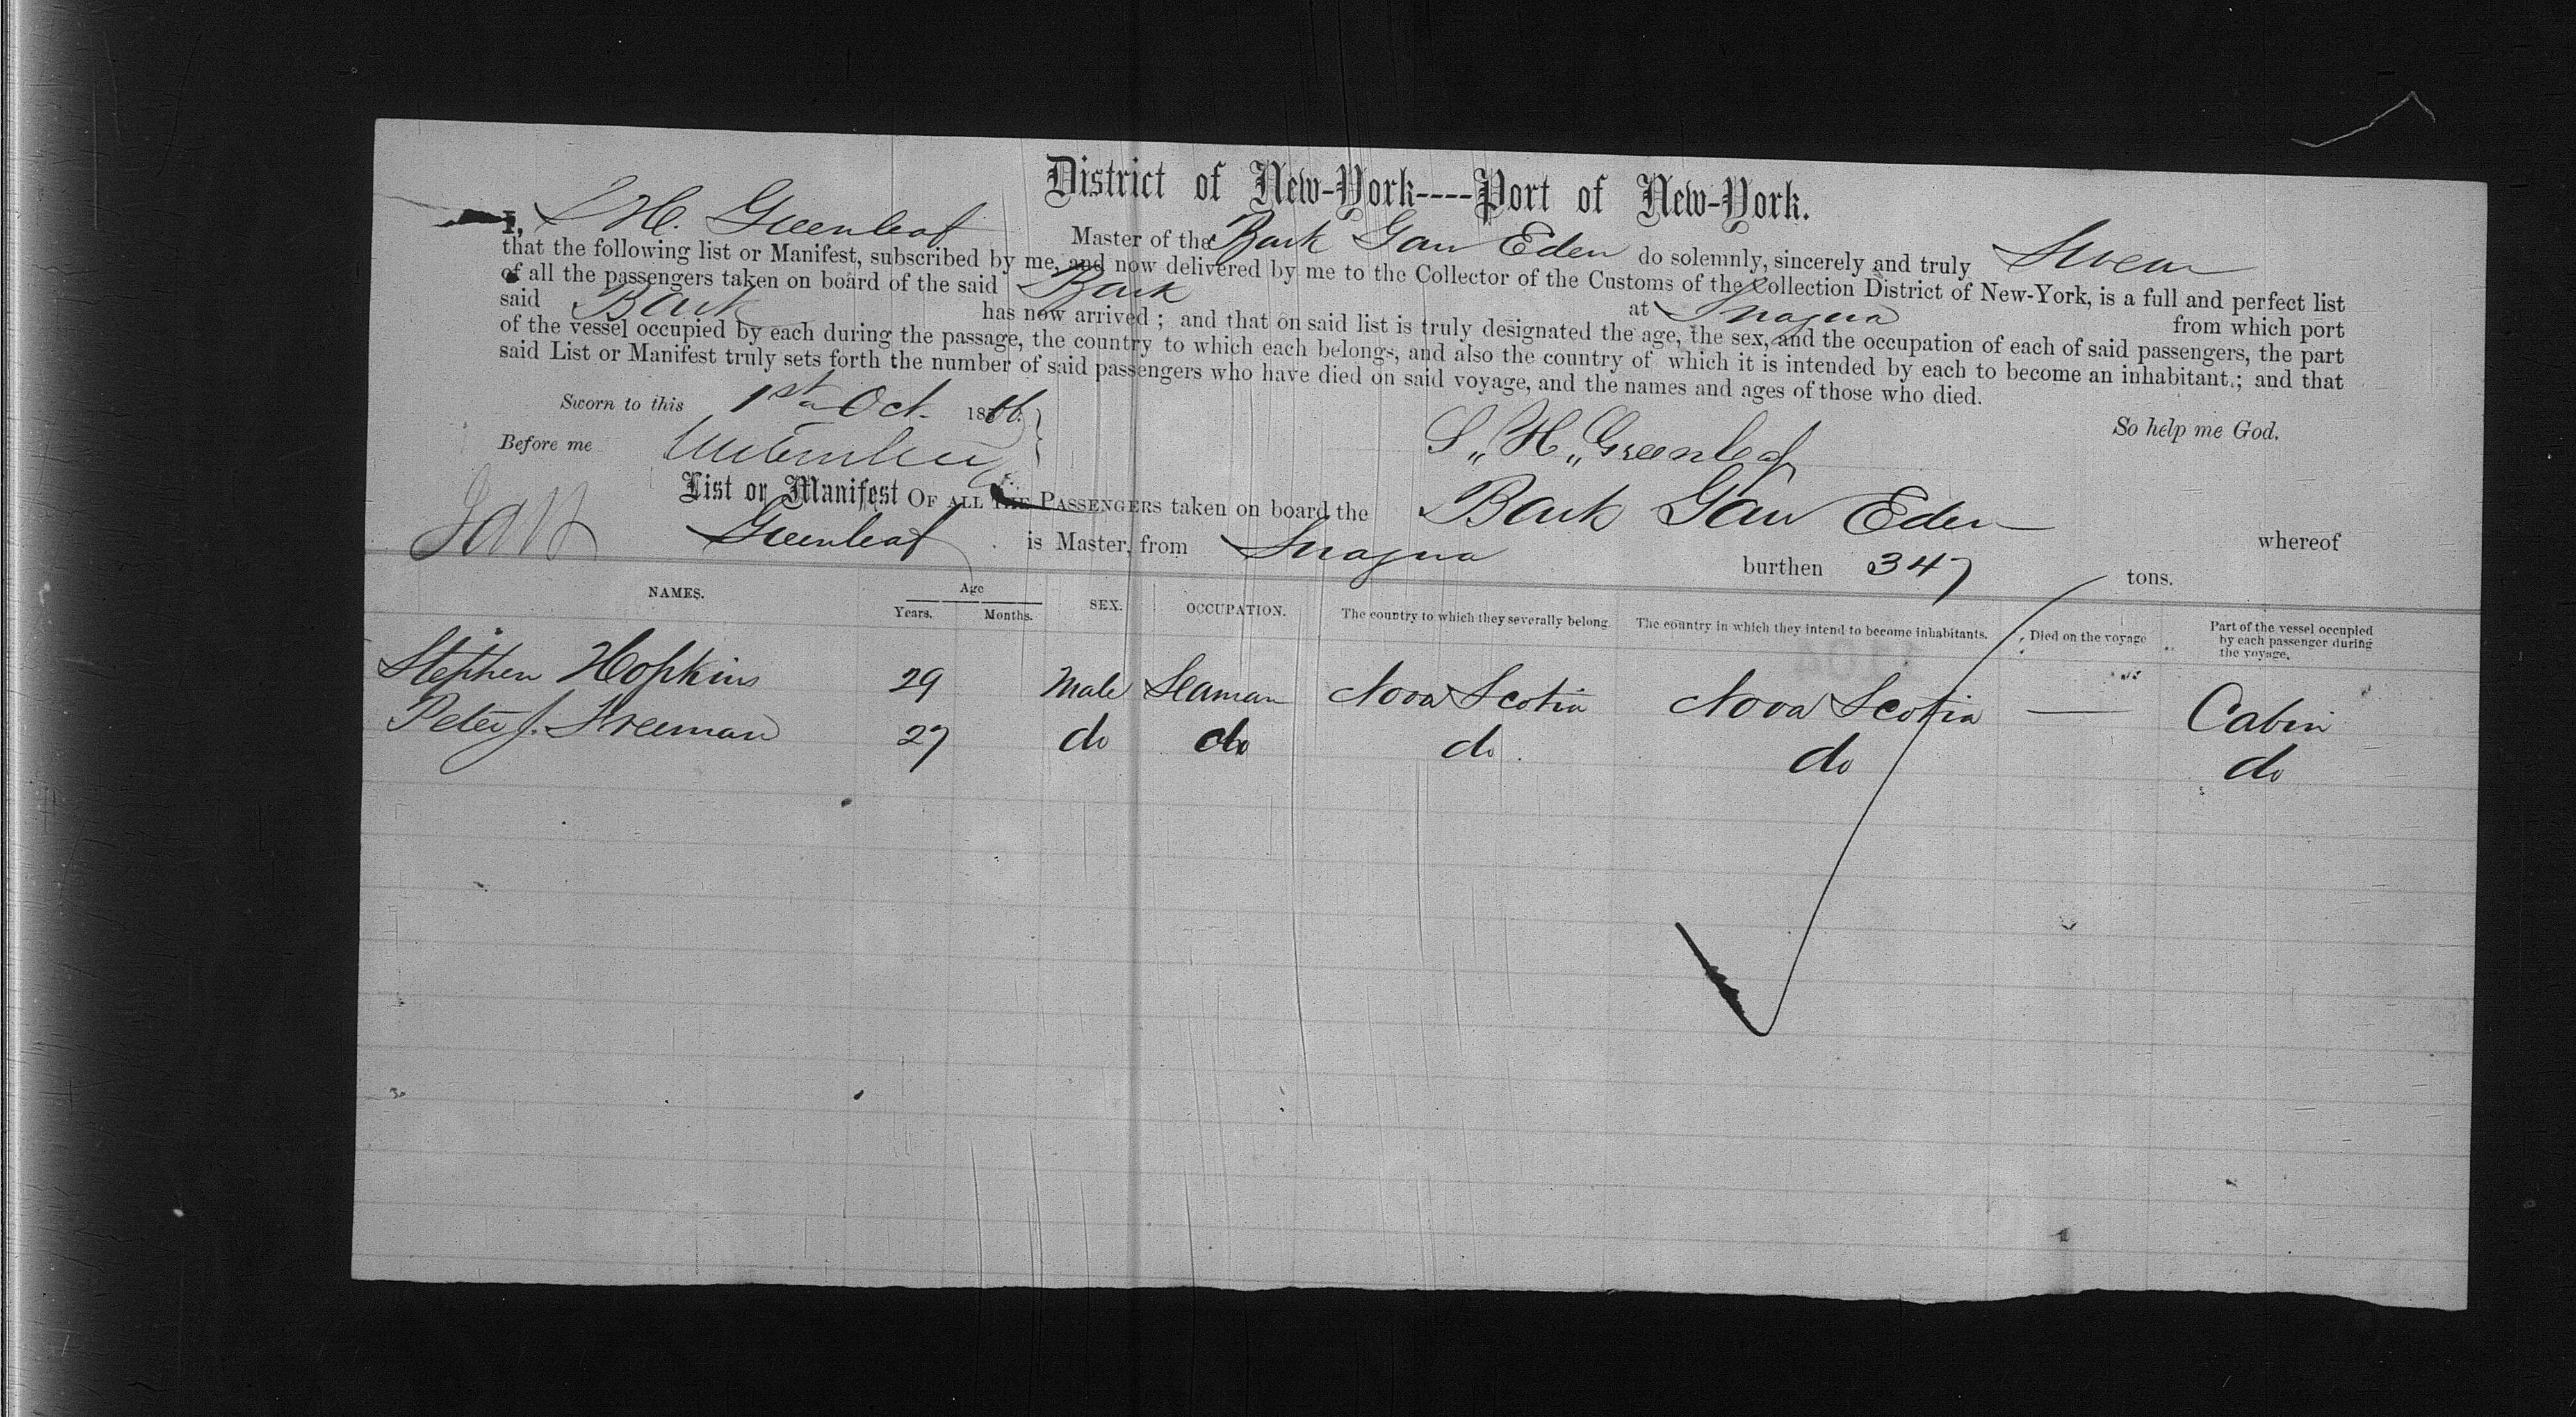 District of New-York----Port of New-York.
I, S H. Greenleaf Master of the Bark Gan Eden do solemnly, sincerely and truly Swear
that the following list or Manifest, subscribed by me, and now delivered by me to the Collector of the Customs of the Collection District of New-York, is a full and perfect list
of all the passengers taken on board of the said Bark at Inagua from which port
said Bark has now arrived ; and that on said list is truly designated the age, the sex, and the occupation of each of said passengers, the part
of the vessel occupied by each during the passage, the country to which each belongs, and also the country of which it is intended by each to become an inhabitant ; and that
said List or Manifest truly sets forth the number of said passengers who have died on said voyage, and the names and ages of those who died.
So help me God.
Sworn to this 1st Oct. 1866.
Before me
S,, H,, Greenleaf
List or Manifest OF ALL THE PASSENGERS taken on board the Bark Gan Eden whereof
Greenleaf is Master, from Inagua burthen 347 tons.
NAMES. Age Years. Months. SEX. OCCUPATION. The country to which they severally belong. The country in which they intend to become inhabitants. Died on the voyage Part of the vessel occupied by each passenger during the voyage.
Stephen Hopkins 29 Male Seaman Nova Scotia Nova Scotia — Cabin
Peter J. Freeman 27 do do do do do